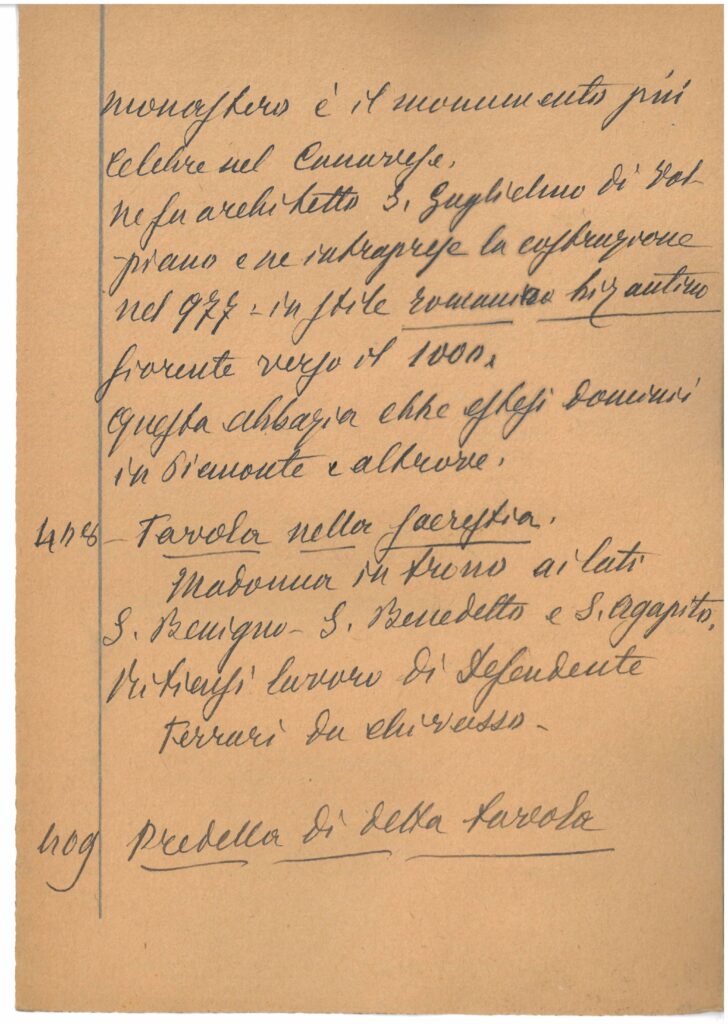 monastero è il monumento più
celebre nel Canavese.
ne fu architetto S. Guglielmo di Vol-
piano e ne intraprese la costruzione
nel 977 - in stile romanico bizantino
fiorente verso il 1000.
Questa abbazia ebbe estesi dominii
in Piemonte e altrove.
- Tavola nella sacrestia.
Madonna in trono ai lati
S. Benigno - S. Benedetto e S. Agapito.
Ritiensi lavoro di Defendente
Ferrari da Chivasso -
Predella di detta tavola